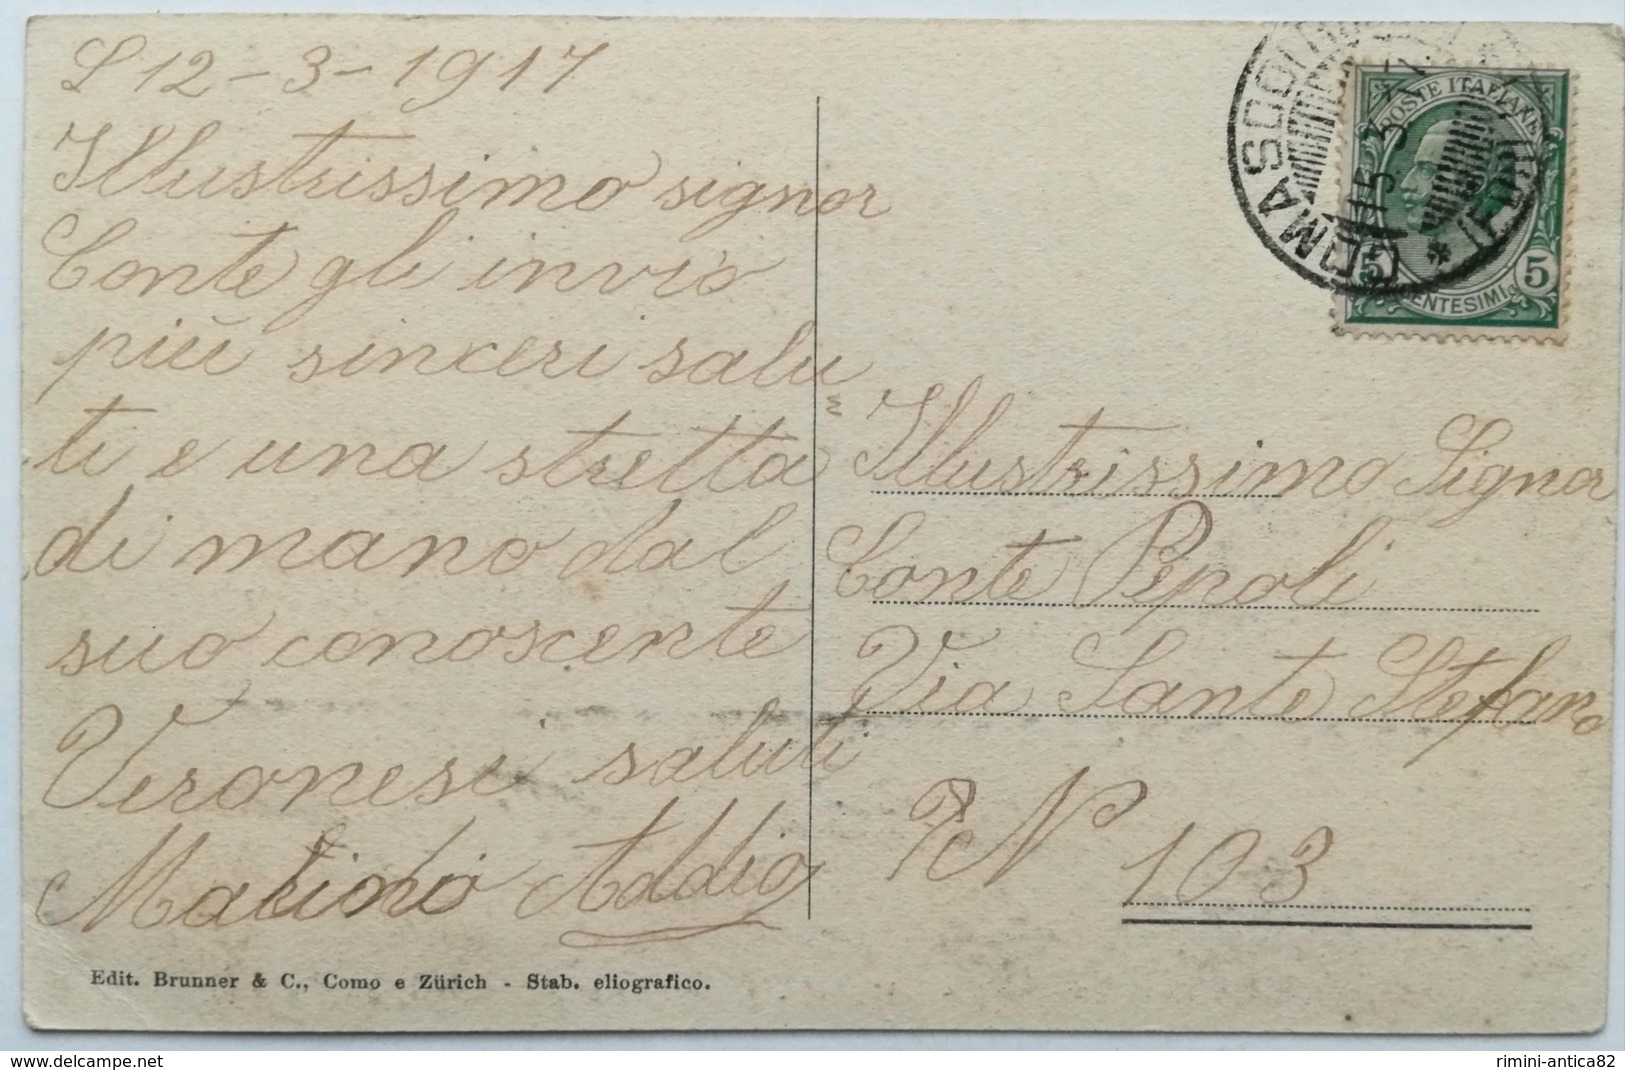 L 12-3-1917
Illustrissimo signor
Conte gli invio
più sinceri salu
ti e una stretta
di mano dal
suo conoscente
Veronesi saluti
Addio
Edit. Brunner & C., Como e Zürich - Stab. eliografico.
POSTE ITALIANE
5 CENTESIMI 5
Illustrissimo Signor
Conte Pepoli
Via Sante Stefano
N° 103
delcampe.net
rimini-antica82